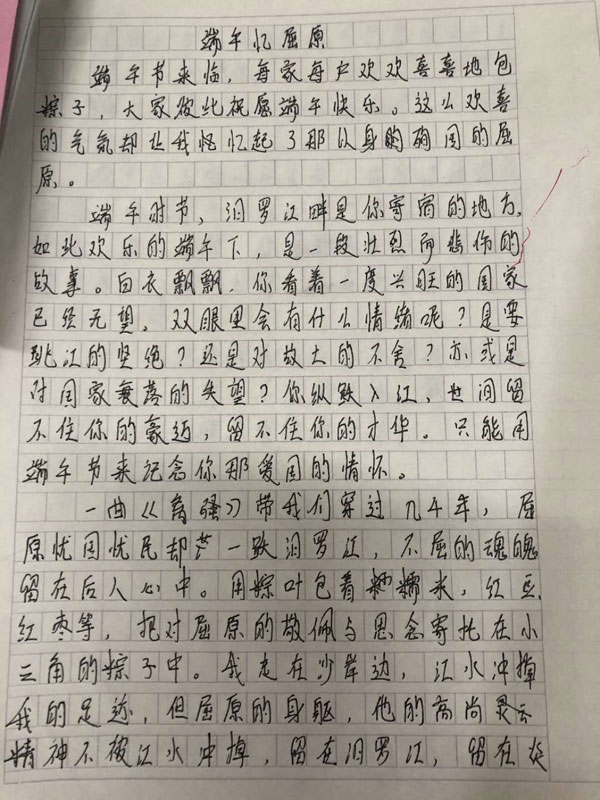 端午忆屈原
端午节来临，每家每户欢欢喜喜地包
粽子，大家彼此祝愿端午快乐。这么欢喜
的气氛却让我忆起了那以身殉国的屈
原。
端午时节，汨罗江畔是你寄宿的地方，
如此欢乐的端午下，是一段壮烈而悲伤的
故事。白衣飘飘，你看着一度兴旺的国家
已经无望，双眼里会有什么情绪呢？是要
跳江的坚绝？还是对故土的不舍？亦或是
对国家衰落的失望？你纵跃入江，世间留
不住你的豪迈，留不住你的才华。只能用
端午节来记念你那爱国的情怀。
一曲《离骚》带我们穿过几千年，屈
原忧国忧民却一跃汨罗江，不屈的魂魄
留在后人心中。用粽叶包着糯米，红豆
红枣等，把对屈原的敬佩与思念寄托在小
三角的粽子中。我走在沙岸边，江水冲掉
我的足迹，但屈原的身躯，他的高尚灵云
精神不被江水冲掉，留在汨罗江，留在炎